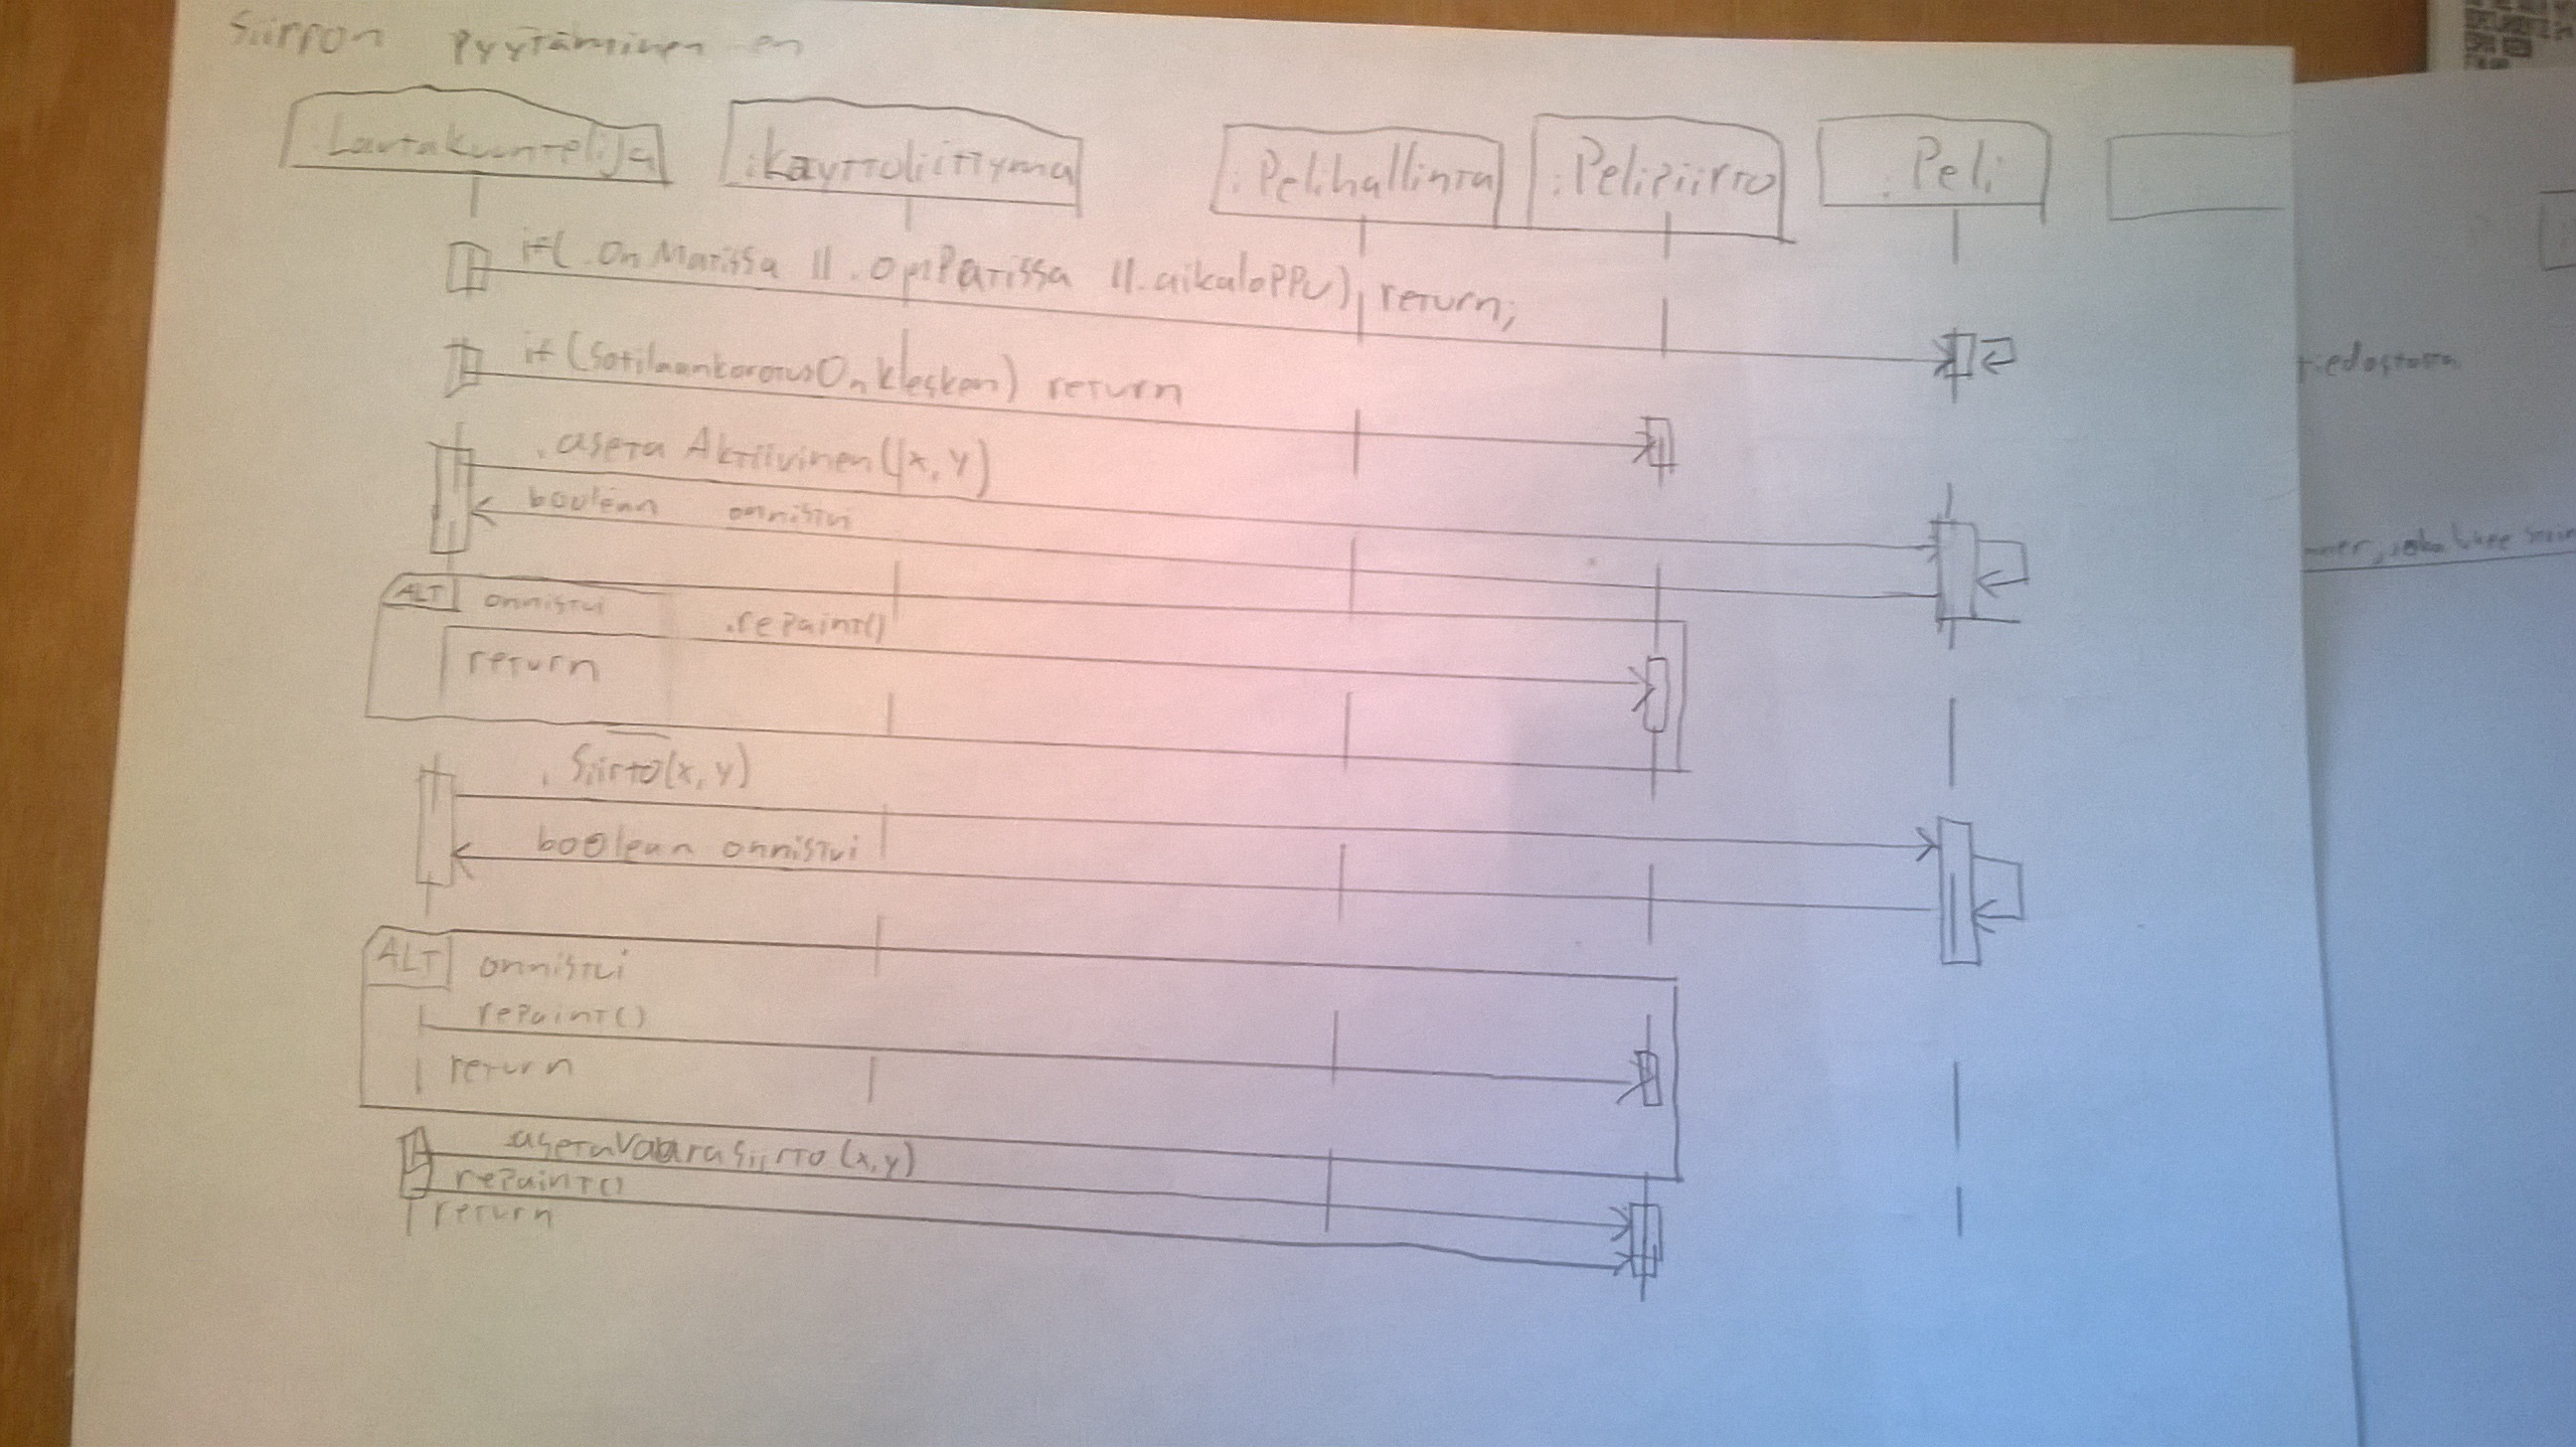 Siirron pyytäminen en
:Lautakuuntelija :Kayttoliittyma :Pelihallinta :Pelipiirto :Peli
if( .OnMatissa || .onPatissa || .aikaloppu) return;
if (SotilaankorotusOnKesken) return
.aseta Aktiivinen(x, y)
boolean onnistui
ALT onnistui
.repaint()
return
.Siirto(x, y)
boolean onnistui
ALT onnistui
repaint()
return
.asetaVaaraSiirto (x,y)
repaint()
return
tiedostosta